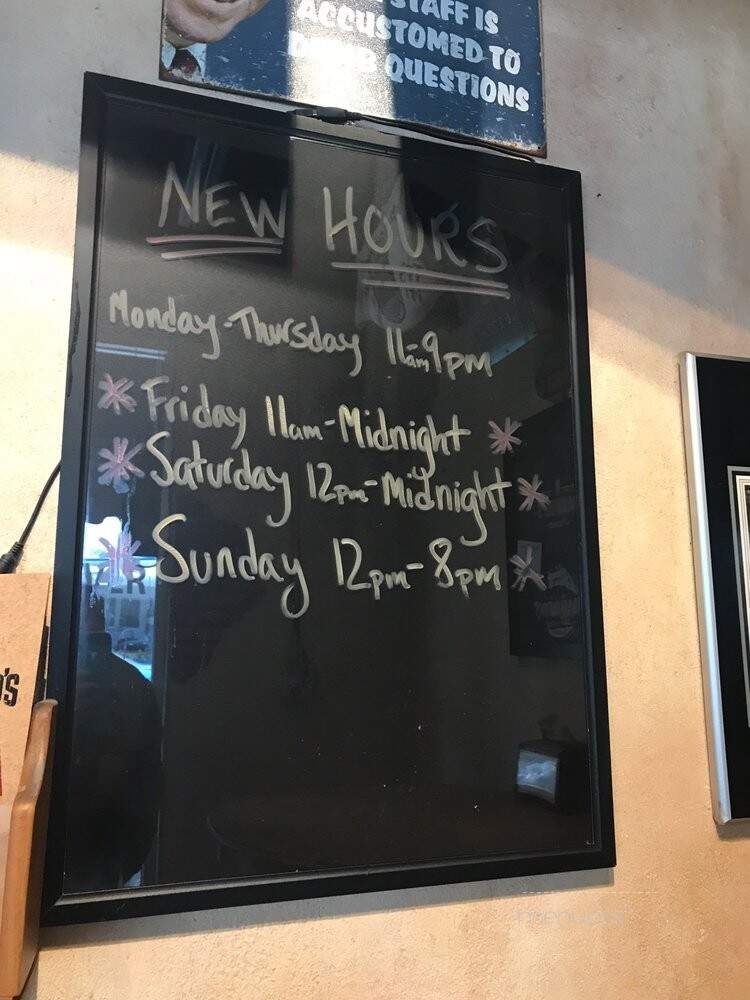 STAFF IS
ACCUSTOMED TO
DUMB QUESTIONS
NEW HOURS
Monday-Thursday 11am-9pm
* Friday 11am-Midnight *
* Saturday 12pm-Midnight *
* Sunday 12pm-8pm *
's
menupix